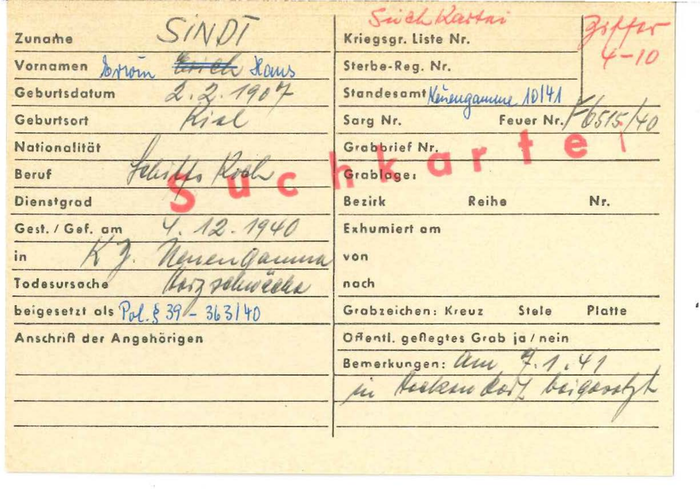 Zuname SINDT
Vornamen Erwin Erich Hans
Geburtsdatum 2.2.1907
Geburtsort Kiel
Nationalität
Beruf Schiffs Koch
Dienstgrad
Gest./Gef. am 4.12.1940
in K Z. Neuengamme
Todesursache Herzschwäche
beigesetzt als Pol. § 39 - 363/40
Anschrift der Angehörigen
Suchkartei
Suchkartei
Ziffer
4-10
Kriegsgr. Liste Nr.
Sterbe-Reg. Nr.
Standesamt Neuengamme 10/41
Sarg Nr. Feuer Nr. F6515/40
Grabbrief Nr.
Grablage:
Bezirk Reihe Nr.
Exhumiert am
von
nach
Grabzeichen: Kreuz Stele Platte
Öffentl. gepflegtes Grab ja/nein
Bemerkungen: Am 7.1.41
in beigesetzt